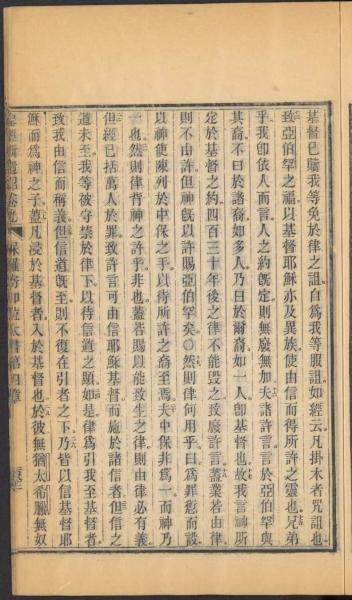 基督已贖我等免於律之詛自為我等服詛如經云凡掛木者咒詛也
致亞伯罕之福以基督耶穌亦及異族使由信而得所許之靈也兄弟
乎我卽依人而言人之約旣定則無廢無加夫諸許言言於亞伯罕與
其裔不曰於諸裔如多人乃曰於爾裔如一人卽基督也故我言神所
定於基督之約四百三十年後之律不能毀之致廢許言蓋業若由律
則不由許但神旣以許賜亞伯罕矣○然則律何用乎曰為罪愆而設
以神使陳列於中保之手以待所許之裔至焉夫中保非為一而神乃
一也然則律背神之許乎非也蓋若賜以能致生之律則由律必有義
但經已括萬人於罪致許言可由信耶穌基督而施於諸信者但信之
道未至我等被守禁於律下以待信道之顯如是律為引我至基督者
致我由信而稱義但信道旣至則不復在引者之下乃皆以信基督耶
穌而為神之子蓋凡浸於基督者入於基督也於彼無猶太希臘無奴